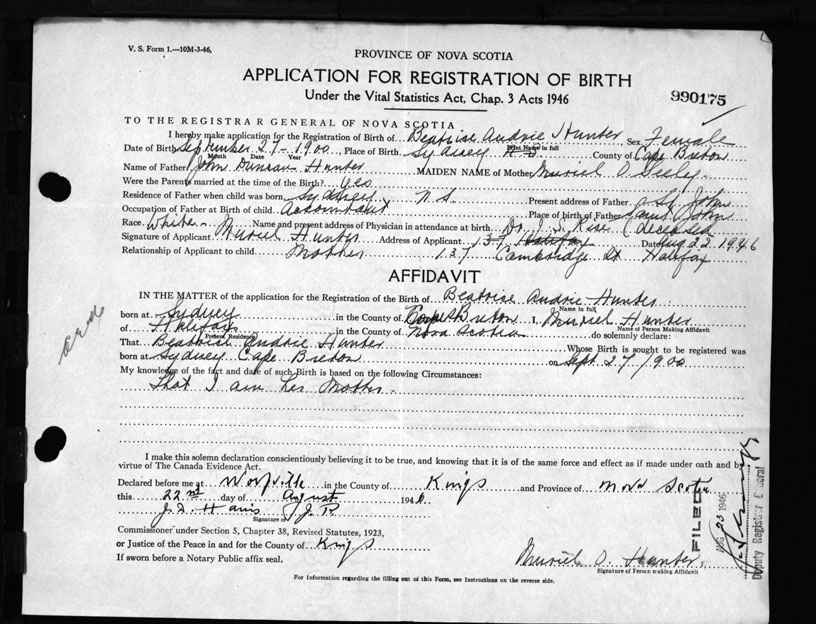 V. S. Form 1.—10M-3-46,
PROVINCE OF NOVA SCOTIA
APPLICATION FOR REGISTRATION OF BIRTH
Under the Vital Statistics Act, Chap. 3 Acts 1946
990175
TO THE REGISTRAR GENERAL OF NOVA SCOTIA
I hereby make application for the Registration of Birth of Beatrice Audrie Hunter Sex Female
Print Name in full
Date of Birth September 27 - 1900 Place of Birth Sydney N S. County of Cape Breton
Month Date Year
Name of Father John Duncan Hunter MAIDEN NAME of Mother Muriel O
Were the Parents married at the time of the Birth? yes
Residence of Father when child was born Sydney N S. Present address of Father St John
Occupation of Father at Birth of child Accountant Place of birth of Father Saint John
Race White Name and present address of Physician in attendance at birth Dr. J. S. (deceased
Signature of Applicant Muriel Hunter Address of Applicant 137 Halifax Date Aug 22 1946
Relationship of Applicant to child. Mother 137 Cambridge St Halifax
AFFIDAVIT
IN THE MATTER of the application for the Registration of the Birth of Beatrice Audrie Hunter
Name in full
born at Sydney in the County of Cape Breton I, Muriel Hunter
Name of Person Making Affidavit
of Halifax in the County of Nova Scotia do solemnly declare:
Present Residence
That Beatrice Audrie Hunter Whose Birth is sought to be registered was
born at Sydney Cape Breton on Sept 27 1900
My knowledge of the fact and date of such Birth is based on the following Circumstances:
That I am her Mother.
I make this solemn declaration conscientiously believing it to be true, and knowing that it is of the same force and effect as if made under oath and by
virtue of The Canada Evidence Act.
Declared before me at Wolfville in the County of Kings and Province of Nova Scotia
this 22nd day of August 1946
J. P.
Signature of
Commissioner under Section 5, Chapter 38, Revised Statutes, 1923,
or Justice of the Peace in and for the County of Kings
If sworn before a Notary Public affix seal.
Muriel O. Hunter
Signature of Person making Affidavit
For Information regarding the filling out of this Form, see Instructions on the reverse side.
FILED
AUG 23 1946
Deputy Registrar General